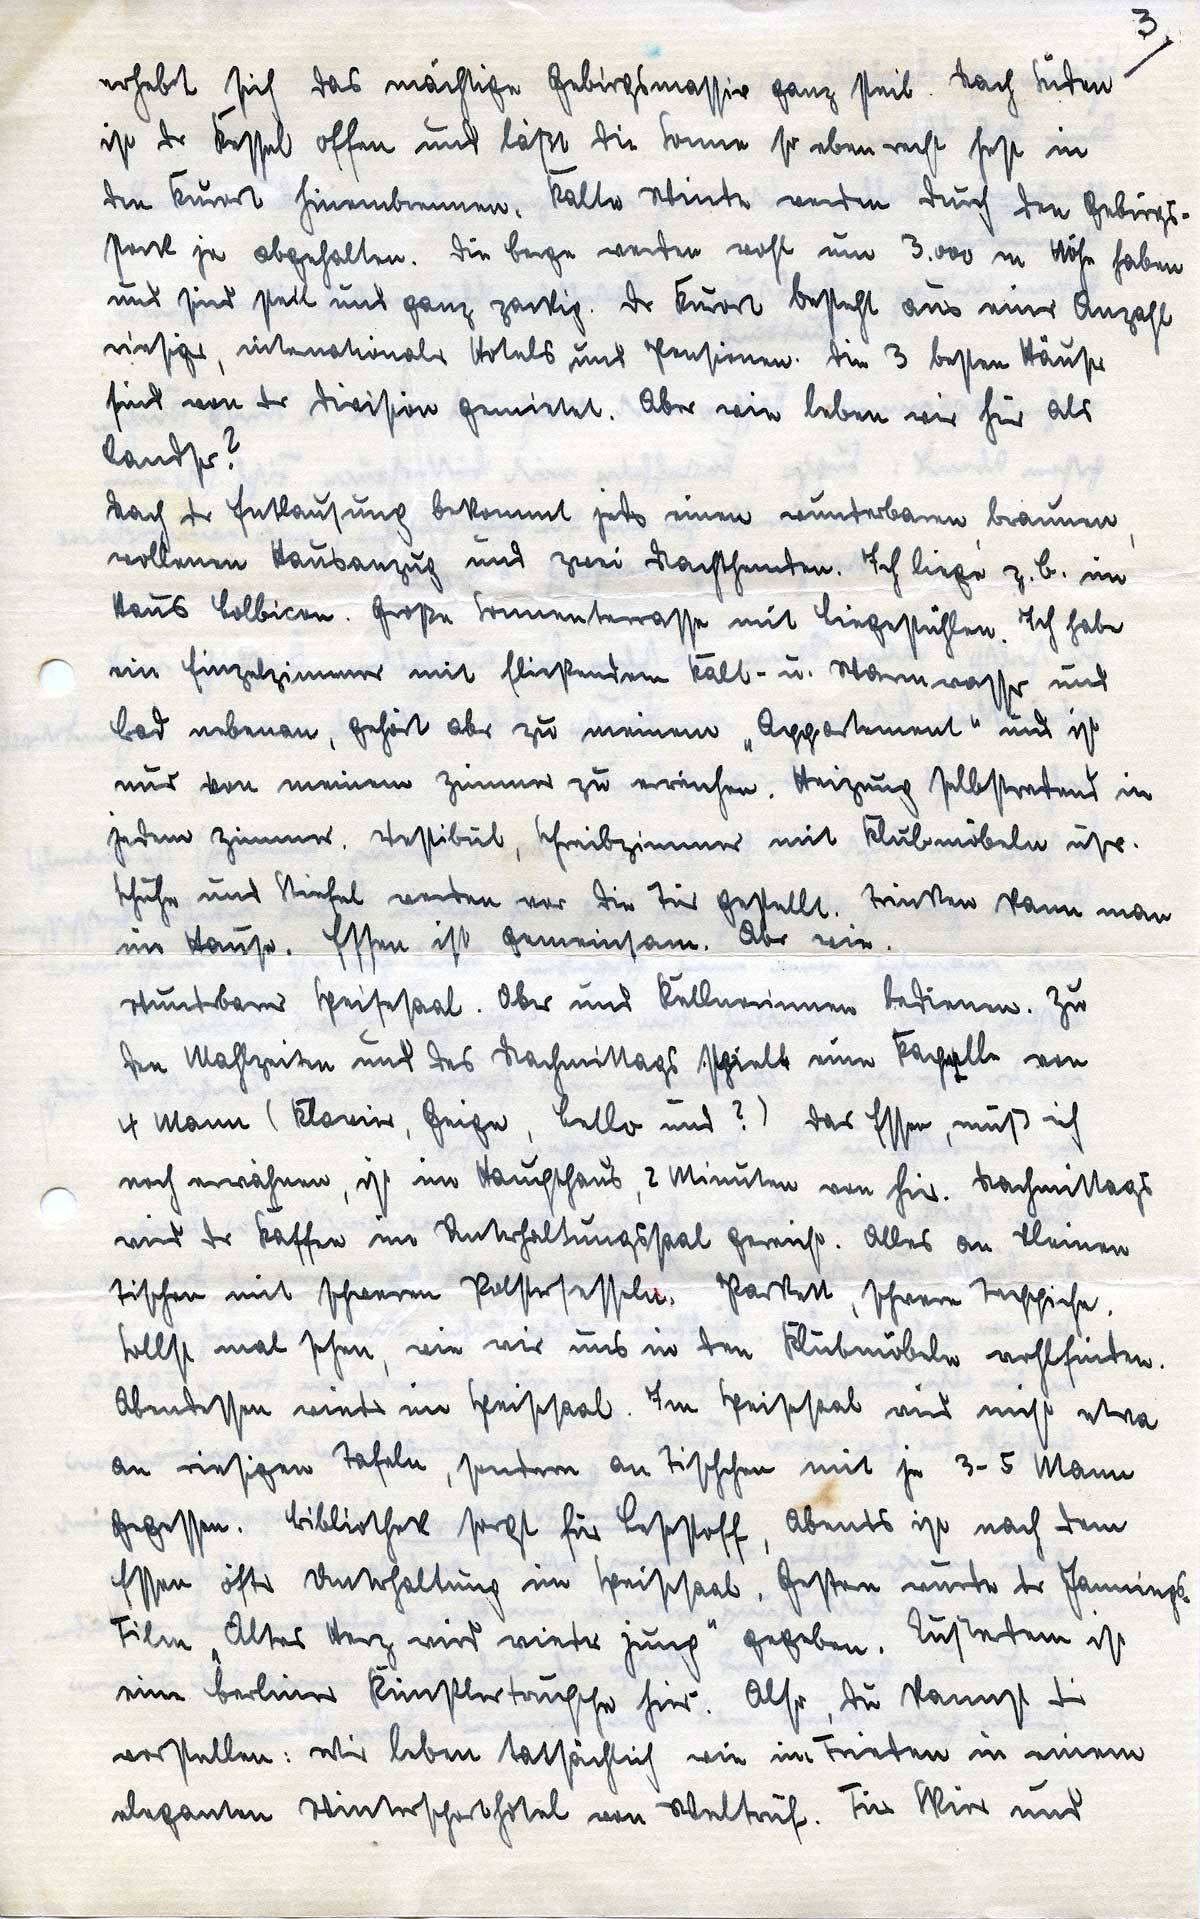 3
erhebt sich das mächtige Gebirgsmassiv ganz steil. Nach Süden
ist der Kessel offen und läßt die Sonne so eben recht fest in
den Kurort hineinbrennen. Kalte Winde werden durch den Gebirgs-
stock ja abgehalten. Die Berge werden wohl um 3.000 m Höhe haben
und sind steil und ganz zackig. Der Kurort besteht aus einer Anzahl
riesiger, internationaler Hotels und Pensionen. Die 3 besten Häuser
sind von der Division gemietet. Aber wie leben wir hier als
Landser?
Nach der Entlausung bekommt jeder einen wunderbaren, braunen,
wollenen Hausanzug und zwei Nachthemden. Ich liege z.B. im
Haus Colbicon. Große Sonnenterrasse mit Liegestühlen. Ich habe
ein Einzelzimmer mit fließendem Kalt- u. Warmwasser und
Bad nebenan, gehört aber zu meinem „Appartement" und ist
nur von meinem Zimmer zu erreichen. Heizung selbstredend in
jedem Zimmer. Vestibül, Schreibzimmer mit Klubmöbeln usw.
Schuhe und Stiefel werden vor die Tür gestellt. Trinken kann man
im Hause. Essen ist gemeinsam. Aber wie.
Wunderbarer Speisesaal. Ober und Kellnerinnen bedienen. Zu
den Mahlzeiten und des Nachmittags spielt eine Kapelle von
4 Mann (Klavier, Geige, Cello und ?) Das Essen, muß ich
noch erwähnen, ist im Haupthaus, 2 Minuten von hier. Nachmittags
wird der Kaffee im Unterhaltungssaal gereicht. Alles an kleinen
Tischen mit schweren Polstersesseln. Parkett, schwere Teppiche.
Sollst mal sehen, wie wir uns in den Klubmöbeln wohlfinden.
Abendessen wieder im Speisesaal. Im Speisesaal wird nicht etwa
an riesigen Tafeln, sondern an Tischchen mit je 3-5 Mann
gegessen. Bibliothek sorgt für Lesestoff, Abends ist nach dem
Essen öfter Unterhaltung im Speisesaal. Gestern wurde der Jannings-
Film „Altes Herz wird wieder jung" gegeben. Außerdem ist
eine Berliner Künstlertruppe hier. Also, Du kannst Dir
vorstellen: Wir leben tatsächlich wie im Frieden in einem
eleganten Wintersporthotel von Weltruf. Für Bier und